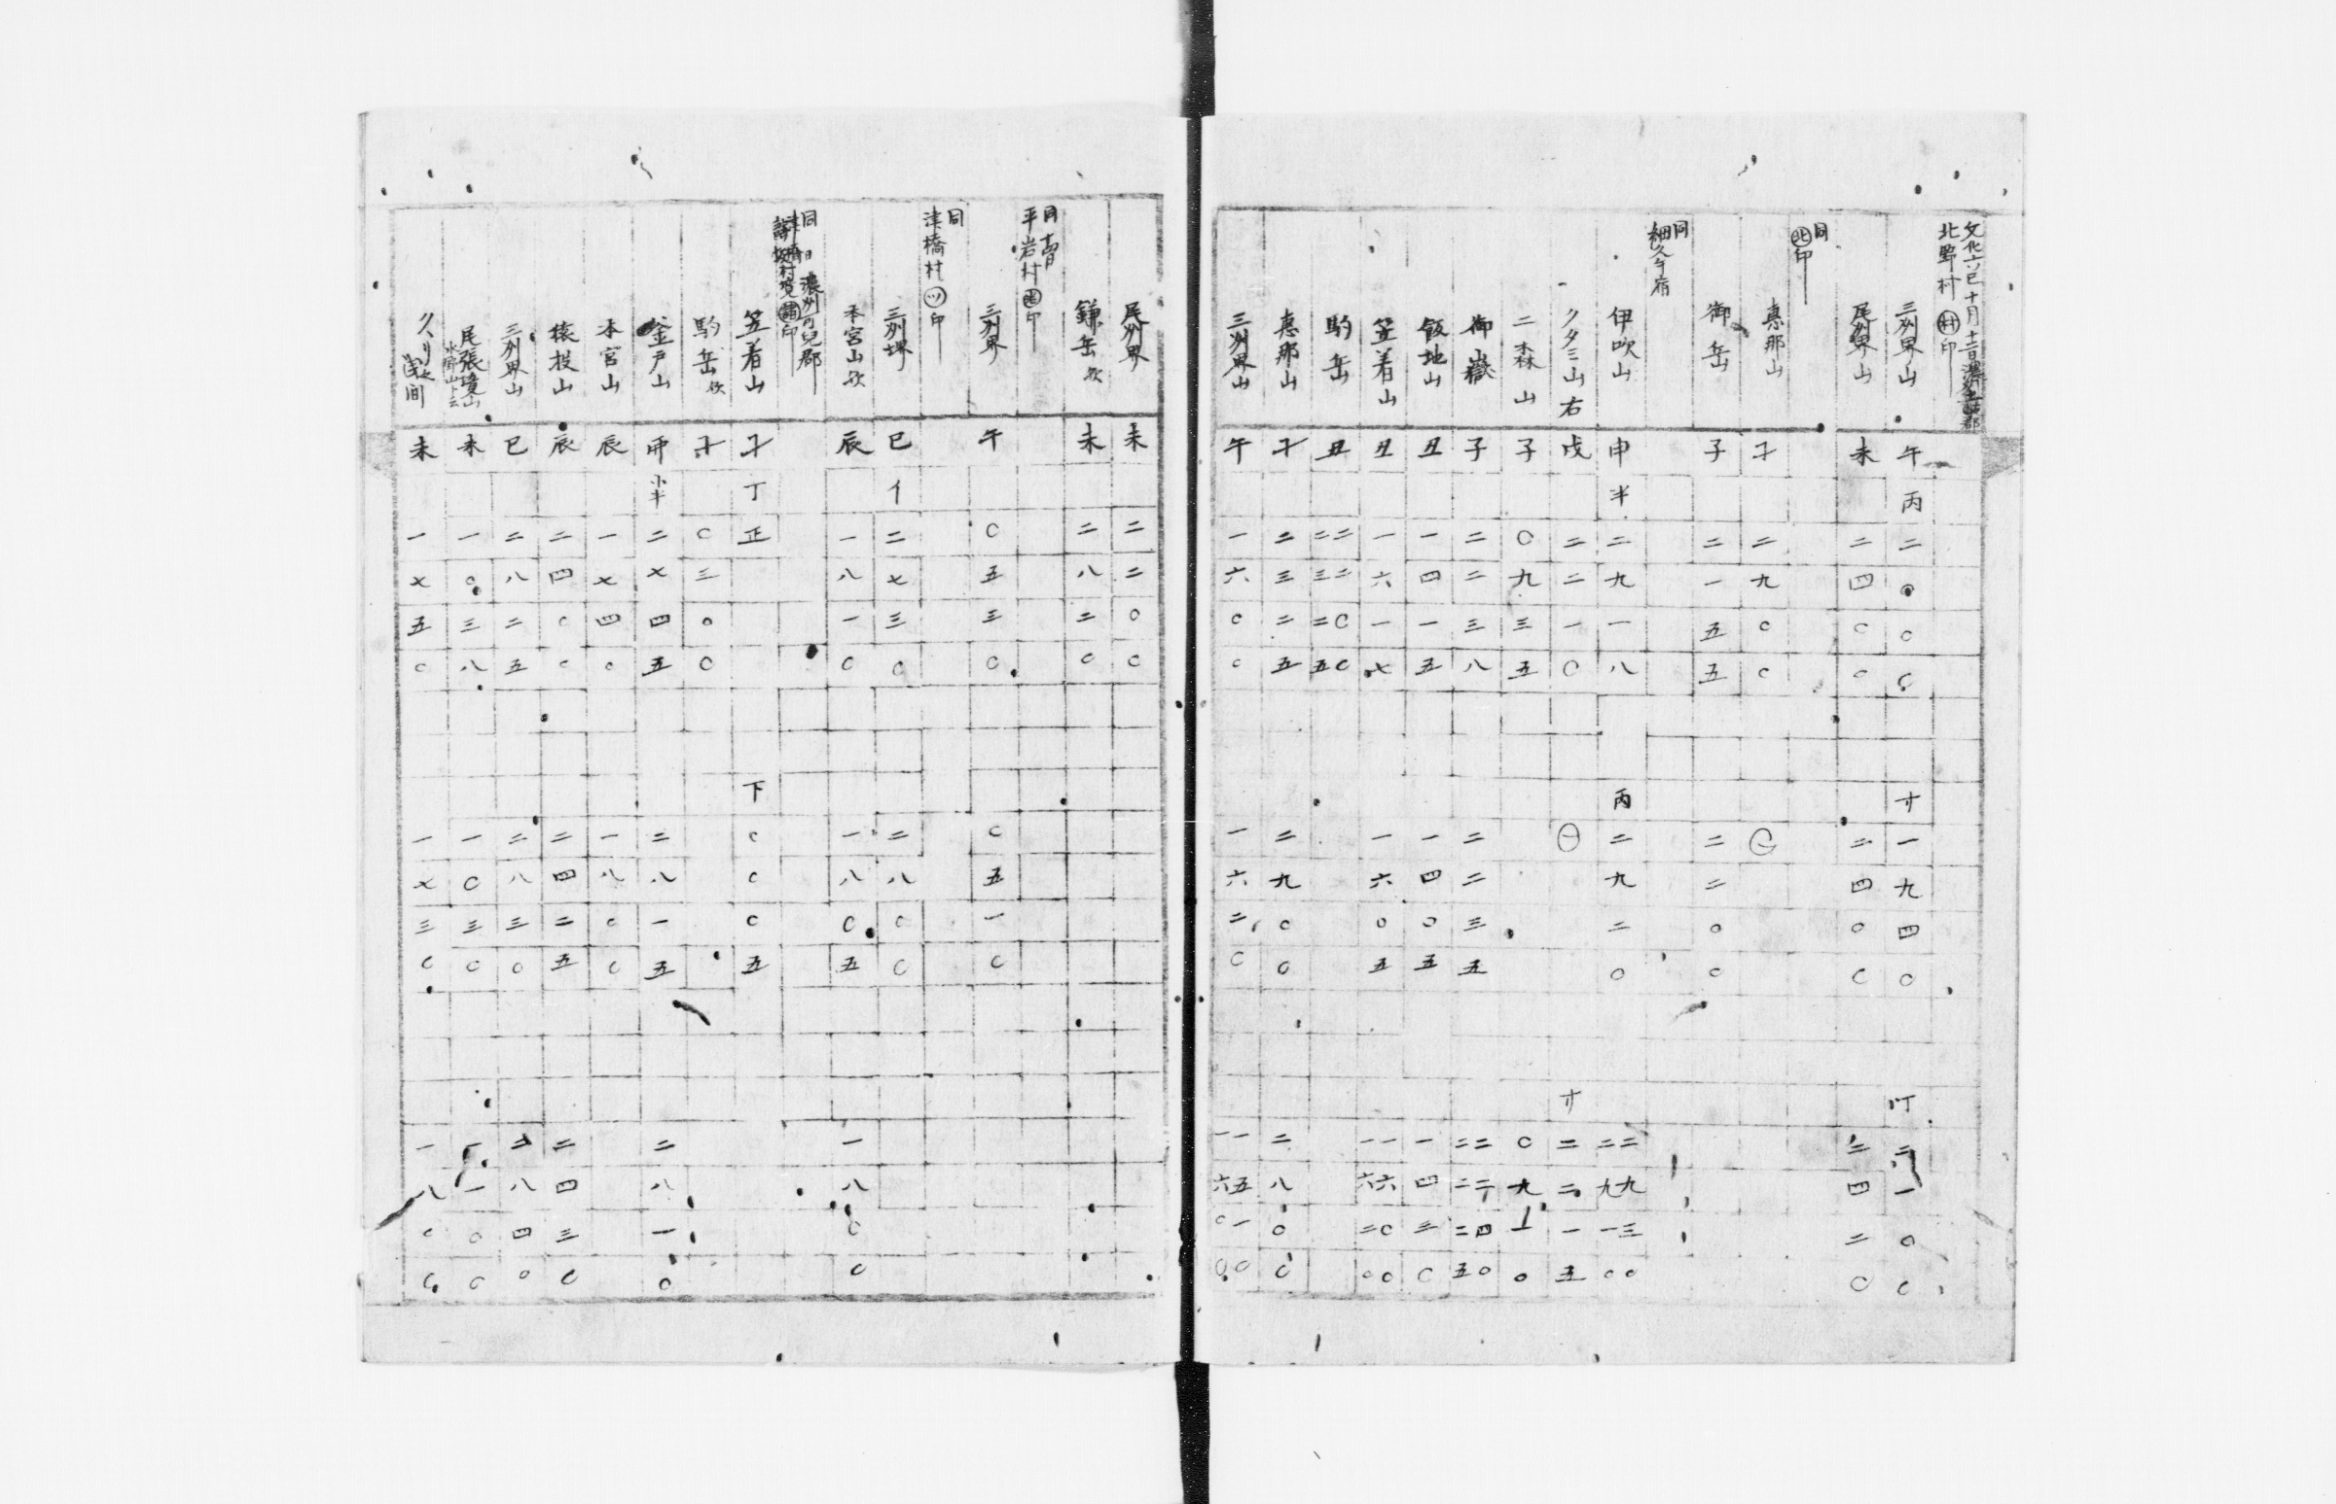 文化六巳十月十三日濃州土岐郡
北野村 村印
三州界山 午 丙 二〇〇〇 寸 一九四〇 丁 二一〇〇
尾州界山 未 二四〇〇 二四〇〇 二四二〇
同
北印
恵那山 子 二九〇〇
御岳 子 二一五五 二二〇〇
同
細久手宿
伊吹山 申 半 二九一八 丙 二九二〇 二九三〇 二九一〇
クタミ山右 戌 二二一〇 寸 二二一五
二森山 子 〇九三五 〇九一〇
御嶽山 子 二二三八 二二三五 二二四〇 二二二五
飯地山 丑 一四一五 一四〇五 一四三〇
笠着山 丑 一六一七 一六〇五 一六〇〇 一六二〇
駒岳 丑 二二〇〇 二三二五
恵那山 子 二三二五 二九〇〇 二八〇〇
三州界山 午 一六〇〇 一六二〇 一五一〇 一六〇〇
尾州界 未 二二〇〇
鎌岳欤 未 二八二〇
同十四日
平岩村 印
三州界 午 〇五三〇 〇五一〇
同
津橋村 ツ印
三州堺 巳 イ 二七三〇 二八〇〇
本宮山欤 辰 一八一〇 一八〇五 一八〇〇
同日 濃州可兒郡
印
笠着山 子 丁 正 下 〇〇〇五
駒岳欤 子 〇三〇〇
釜戸山 申 小半 二七四五 二八一五 二八一〇
本宮山 辰 一七四〇 一八〇〇
猿投山 辰 二四〇〇 二四二五 二四三〇
三州界山 巳 二八二五 二八三〇 二八四〇
尾張境山 未 一〇三八 一〇三〇 一一〇〇
クヽリ 浅間 未 一七五〇 一七三〇 一八〇〇